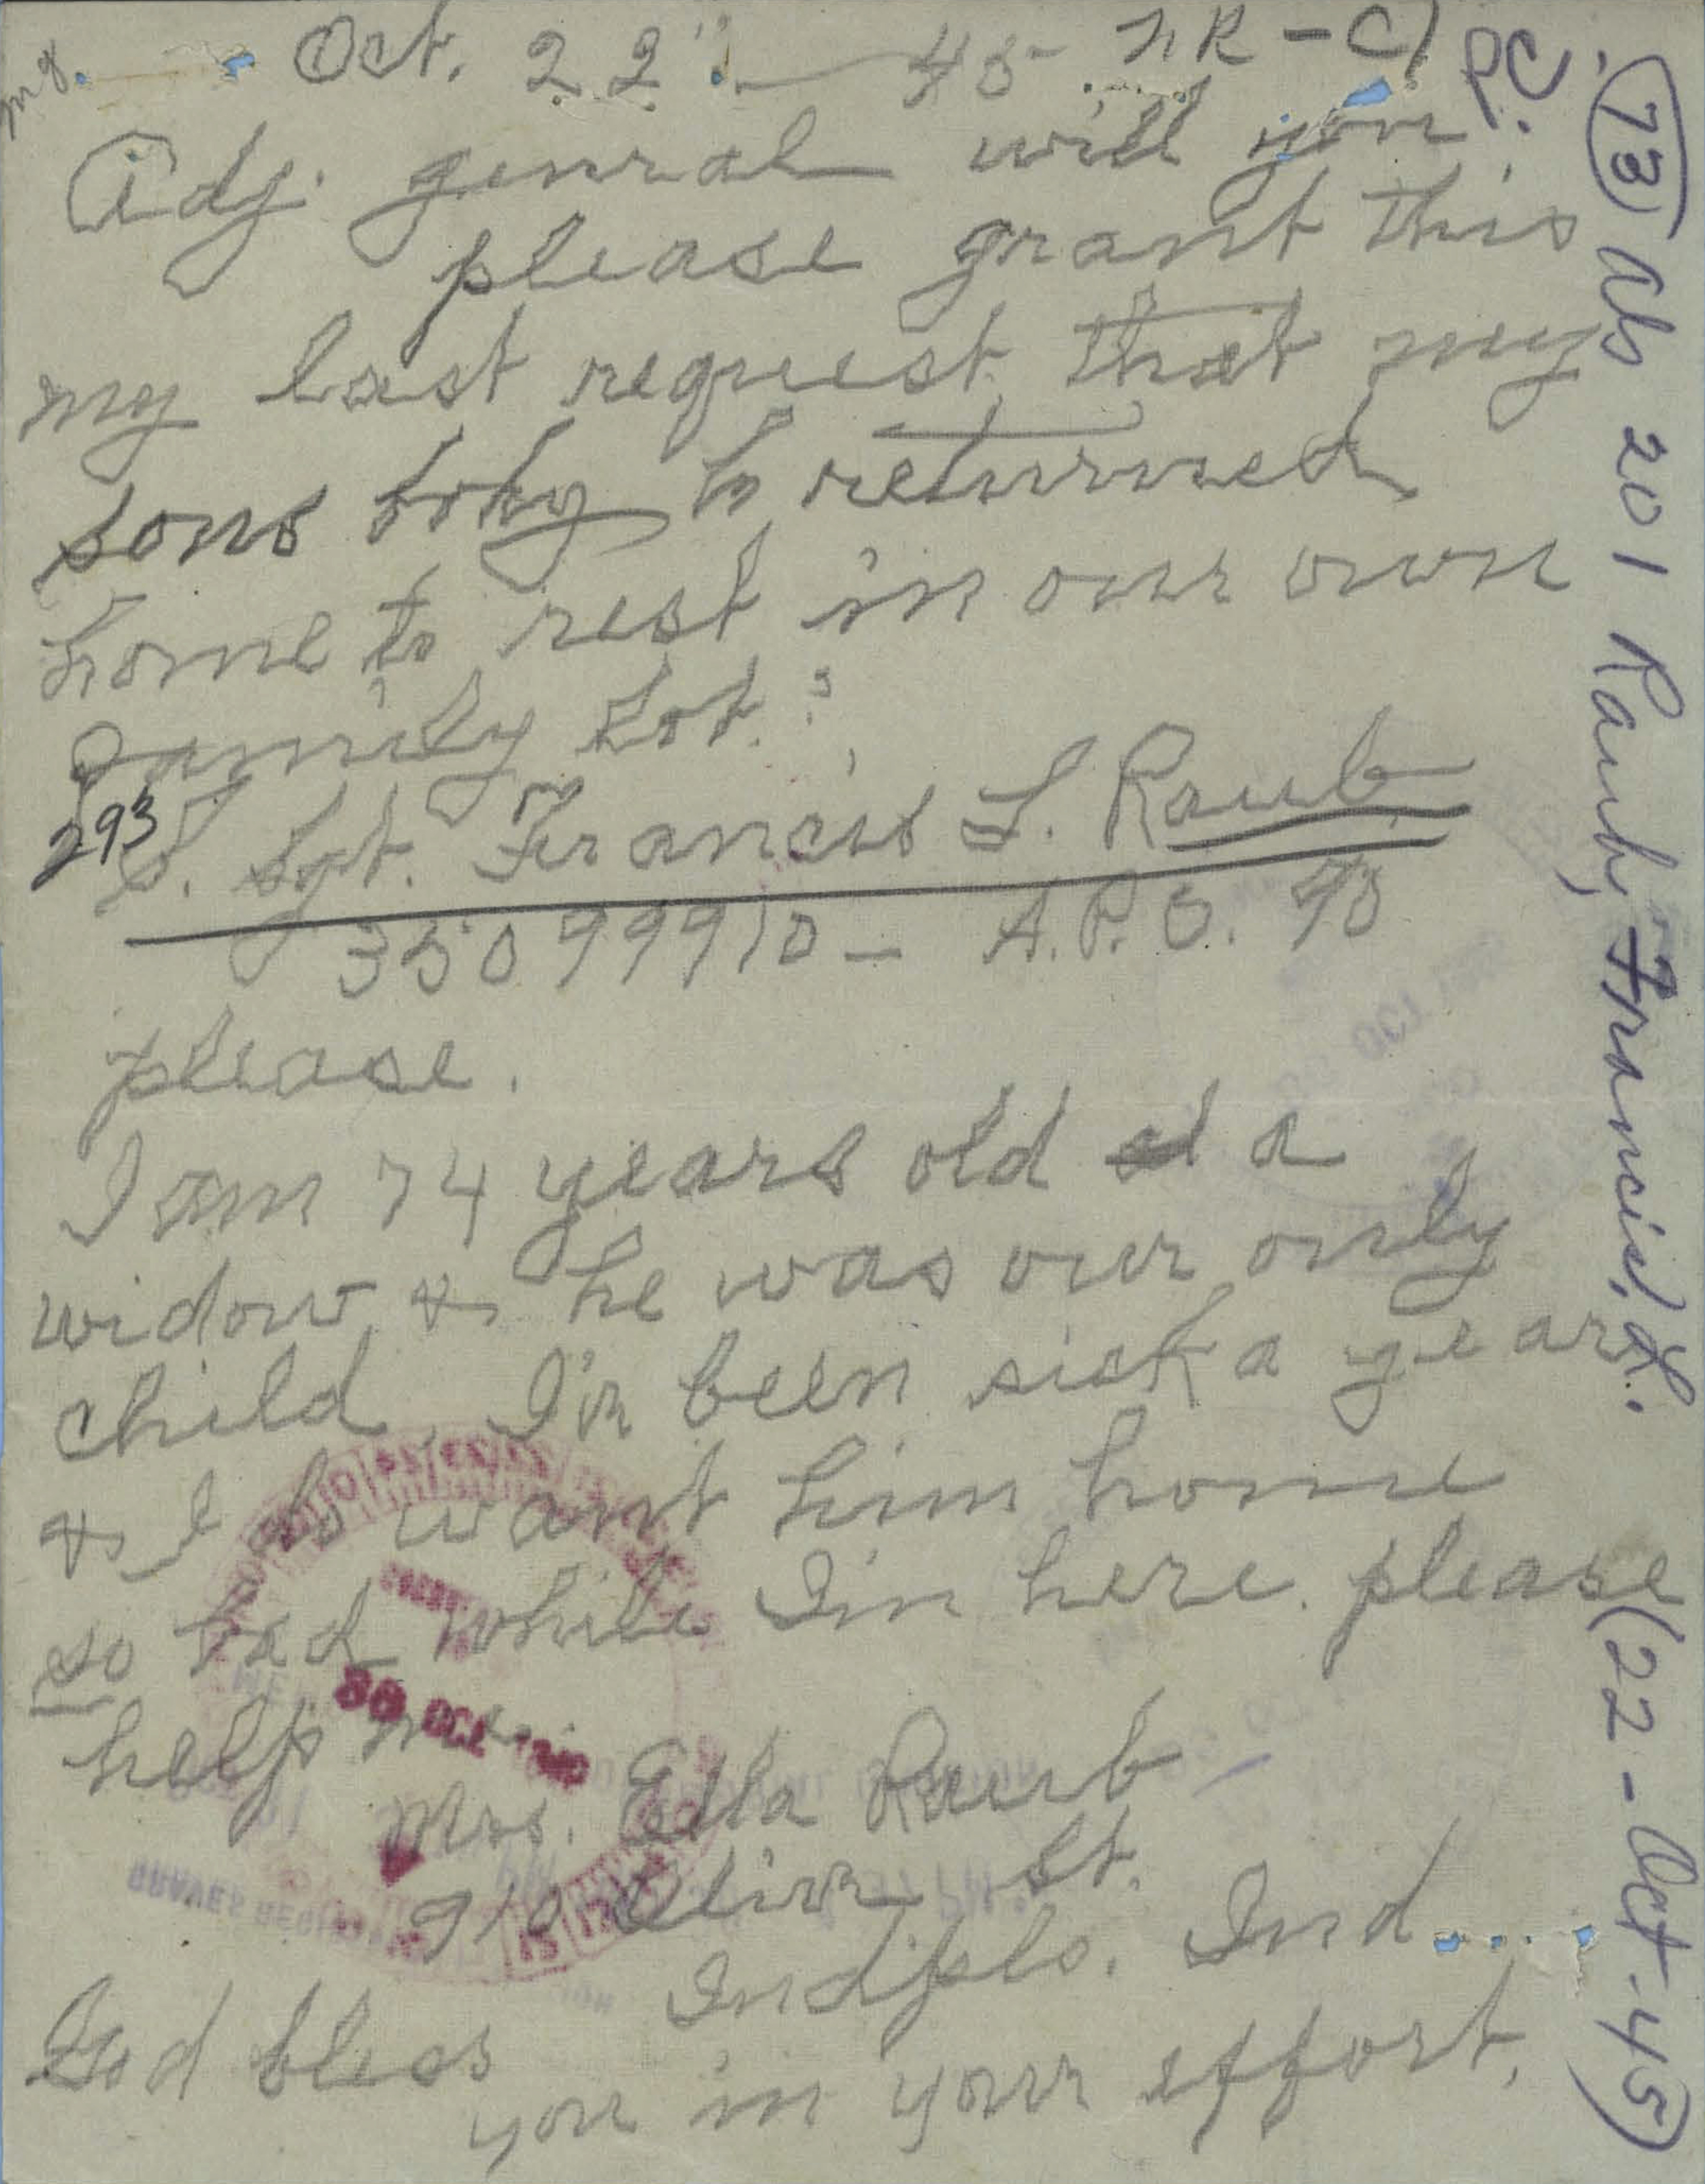 Oct. 22" — 45 NR - C)
Adj. genral will you
please grant this
my last request, that my
sons body be returned
home to rest in our own
family lot.
293
S. Sgt. Francis L. Raub
35099910 — A.P.O. 40
please.
I am 74 years old a
widow & he was our only
child, I'v been sick a year
& I do want him home
so bad while I'm here. please
help me.
Mrs. Ella Raub
910 Olive St.
Indpls. Ind.
God bless
you in your effort.
(73) ab 201 Raub, Francis L. (22-Oct-45)
OCT